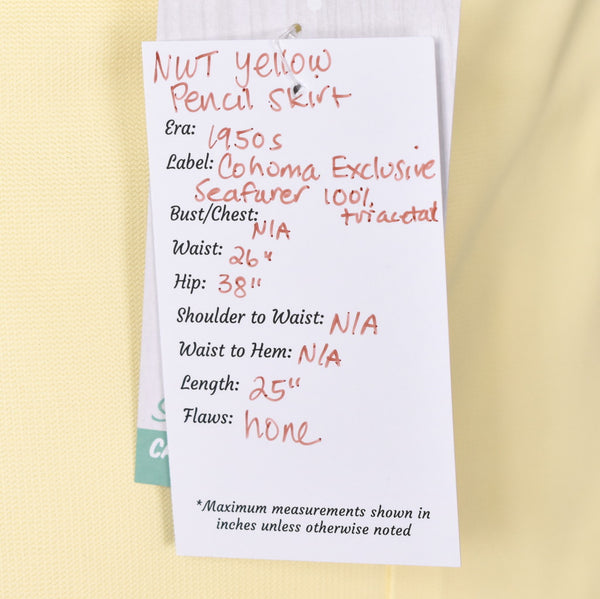 NWT Yellow
Pencil Skirt
Era: 1950s
Label: Cohoma Exclusive
Seafarer 100%
triacetal
Bust/Chest: N/A
Waist: 26"
Hip: 38"
Shoulder to Waist: N/A
Waist to Hem: N/A
Length: 25"
Flaws: none
*Maximum measurements shown in
inches unless otherwise noted